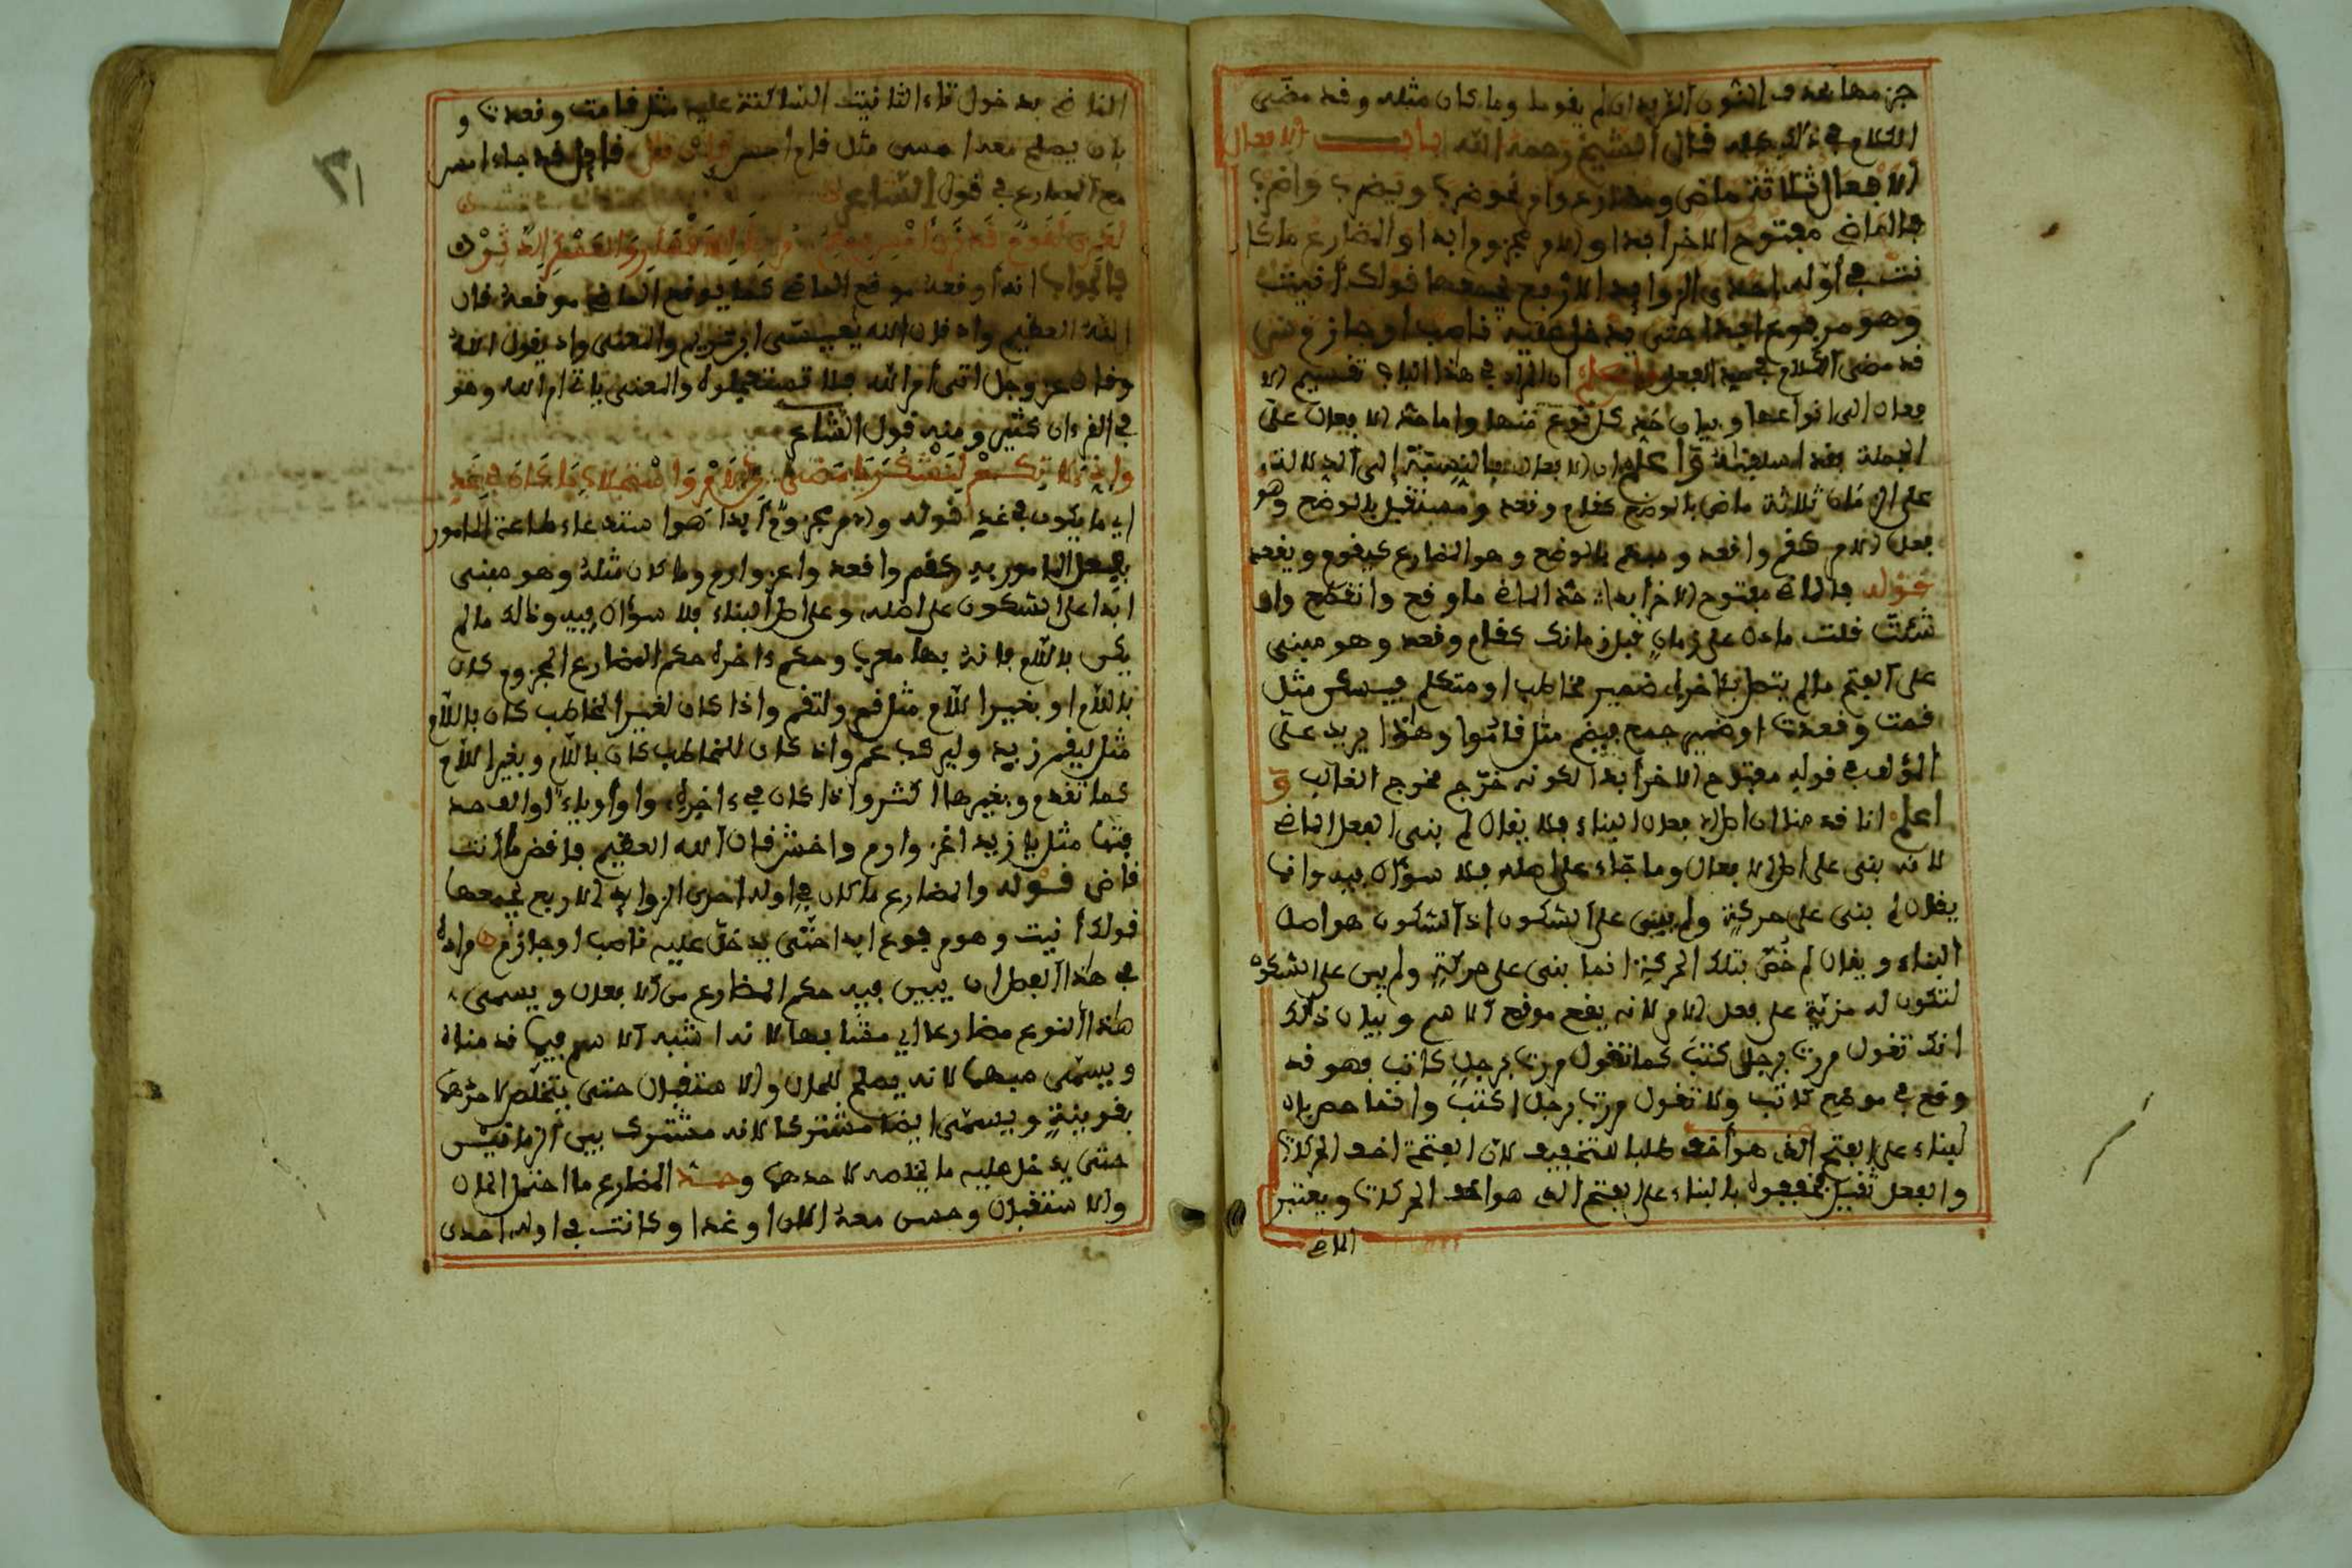 جزمها بحذف النون الزيدان لم يقوما وما كان مثله وقد مضى
الكلام في ذلك كله قال الشيخ رحمه الله باب الافعال
الافعال ثلاثة ماض ومضارع وامر نحو ضرب ويضرب واضرب
فالماضي مفتوح الاخر ابدا والامر مجزوم ابدا والمضارع ما كا
نت في اوله احدى الزوايد الاربع يجمعها قولك انيت
وهو مرفوع ابدا حتى يدخل عليه ناصب او جازم
قد مضى الكلام في حد الفعل المراد في هذا الباب تقسيم الا
فعال الى انواعها وبيان حد كل نوع منها واما حد الافعال على
الجملة فقد اعلم ان الافعال بالنسبة الى الدلالة
على الزمان ثلاثة ماض بالوضع كقام وقعد ومستقبل بالوضع وهو
فعل الامر كقم واقعد ومبهم بالوضع وهو المضارع كيقوم ويقعد
قوله فالماضي مفتوح الاخر ابدا حد الماضي ما وقع وانقطع وان
شئت قلت ما دل على زمان قبل زمانك كقام وقعد وهو مبني
على الفتح ما لم يتصل باخره ضمير مخاطب او متكلم فيسكن مثل
قمت وقعدت او ضمير جمع فيضم مثل قاموا وهذا يرد على
المؤلف في قوله مفتوح الاخر ابدا لكونه خرج مخرج الغالب و
اعلم انا قدمنا ان اصل الافعال البناء فلا يقال لم بني الفعل الماضي
لانه بني على اصل الافعال وما جاء على اصله فلا سؤال فيه وانما
يقال لم بني على حركة ولم يبنى على السكون اذ السكون هو اصل
البناء ويقال لم خص بتلك الحركة انما بني على حركة ولم يبن على السكون
لتكون له مزية على فعل الامر لانه يقع موقع الاسم وبيان ذلك
انك تقول مررت برجل كتب كما تقول مررت برجل كاتب فهو قد
وقع في موضع كاتب ولا تقول مررت برجل اكتب وانما خص بان
لبناء على الفتح الذي هو اخف طلبا للتخفيف لان الفتحة اخف الحركات
والفعل ثقيل فخففوه بالبناء على الفتح الذي هو اخف الحركات ويعتبر
الماضي
٣١
الماضي بدخول تاء التانيث الساكنة عليه مثل قامت وقعدت و
بان يصلح معه امس مثل قام امس فان قيل قد جاء امس
مع المضارع في قول الشاعر
فالجواب انه اوقعه موقع الماضي كما يوقع الماضي موقعه قال
الله العظيم واذ قال الله يعيسى ابن مريم والمعنى واذ يقول الله
وقال عز وجل اتى امر الله فلا تستعجلوه والمعنى ياتي امر الله وهو
في القرءان كثير ومنه قول الشاعر
اي ما يكون في غد قوله والامر مجزوم ابدا هو استدعاء طاعة المامور
بفعل المامور به كقم واقعد واغز وارم وما كان مثله وهو مبني
ابدا على السكون على اصله وعلى اصل البناء فلا سؤال فيه وذلك ما لم
يكن باللام فانه بها معرب وحكم ءاخره حكم المضارع المجزوم كان
باللام او بغير اللام مثل قم ولتقم واذا كان لغير المخاطب كان باللام
مثل ليقم زيد وليركب عمر واذا كان للمخاطب كان باللام وبغير اللام
كما تقدم وبغيرها اكثر واذا كان في ءاخره واوا او ياء او الف حذ
فتها مثل يا زيد اغز وارم واخش قال الله العظيم فاقض ما انت
قاض قوله والمضارع ما كان في اوله احدى الزوايد الاربع يجمعها
قولك انيت وهو مرفوع ابدا حتى يدخل عليه ناصب او جازم مراده
في هذا الفصل ان يبين فيه حكم المضارع من الافعال ويسمى
هذا النوع مضارعا اي مشابها لانه اشبه الاسم فيما قدمناه
ويسمى مبهما لانه يصلح للحال والاستقبال حتى يتخلص لاحدهما
بقرينة ويسمى ايضا مشتركا لانه مشترك بين الزمانين
حتى يدخل عليه ما يخلصه لاحدهما وحد المضارع ما احتمل الحال
والاستقبال وحسن معه الان او غدا وكانت في اوله احدى